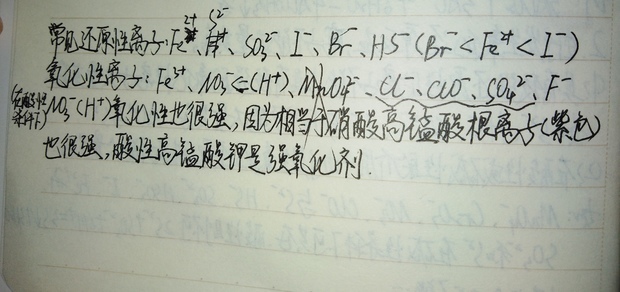 常见还原性离子:Fe²⁺、S²⁻、SO₃²⁻、I⁻、Br⁻、HS⁻(Br⁻<Fe²⁺<I⁻)
氧化性离子:Fe³⁺、NO₃⁻(H⁺)、MnO₄⁻、Cl⁻、ClO⁻、SO₄²⁻、F⁻
(在酸性条件下)NO₃⁻(H⁺)氧化性也很强,因为相当于硝酸高锰酸根离子(紫色)
也很强,酸性高锰酸钾是强氧化剂.